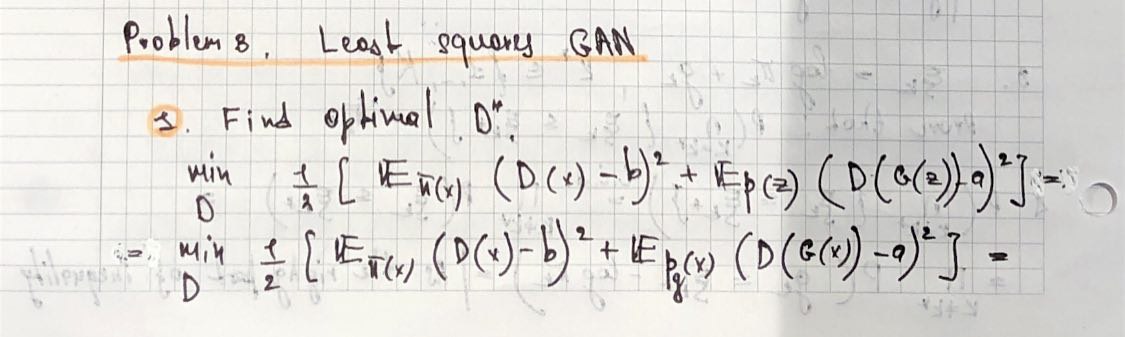 Problem 8. Least squares GAN
1. Find optimal D*.
min_D 1/2 [ 𝔼_π(x) (D(x) - b)² + 𝔼_p(z) (D(G(z)) - a)² ] =
= min_D 1/2 [ 𝔼_π(x) (D(x) - b)² + 𝔼_p_g(x) (D(G(x)) - a)² ] =